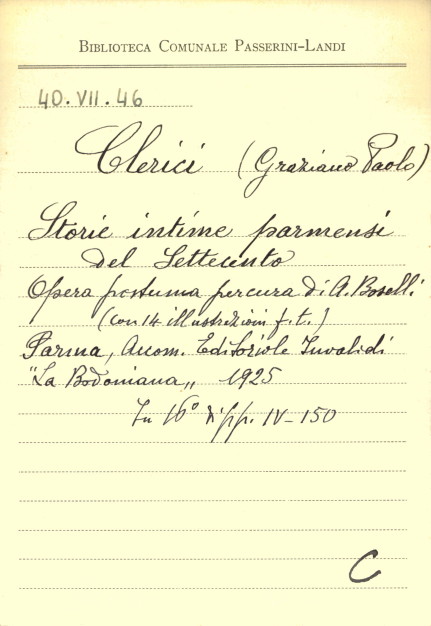 BIBLIOTECA COMUNALE PASSERINI-LANDI
40.VII.46
Clerici (Graziano Paolo)
Storie intime parmensi
del Settecento
Opera postuma per cura di A. Boselli
(con 14 illustrazioni f.t.)
Parma, Anon. Editoriale Invalidi
"La Bodoniana„ 1925
In 16° di pp. IV-150
C